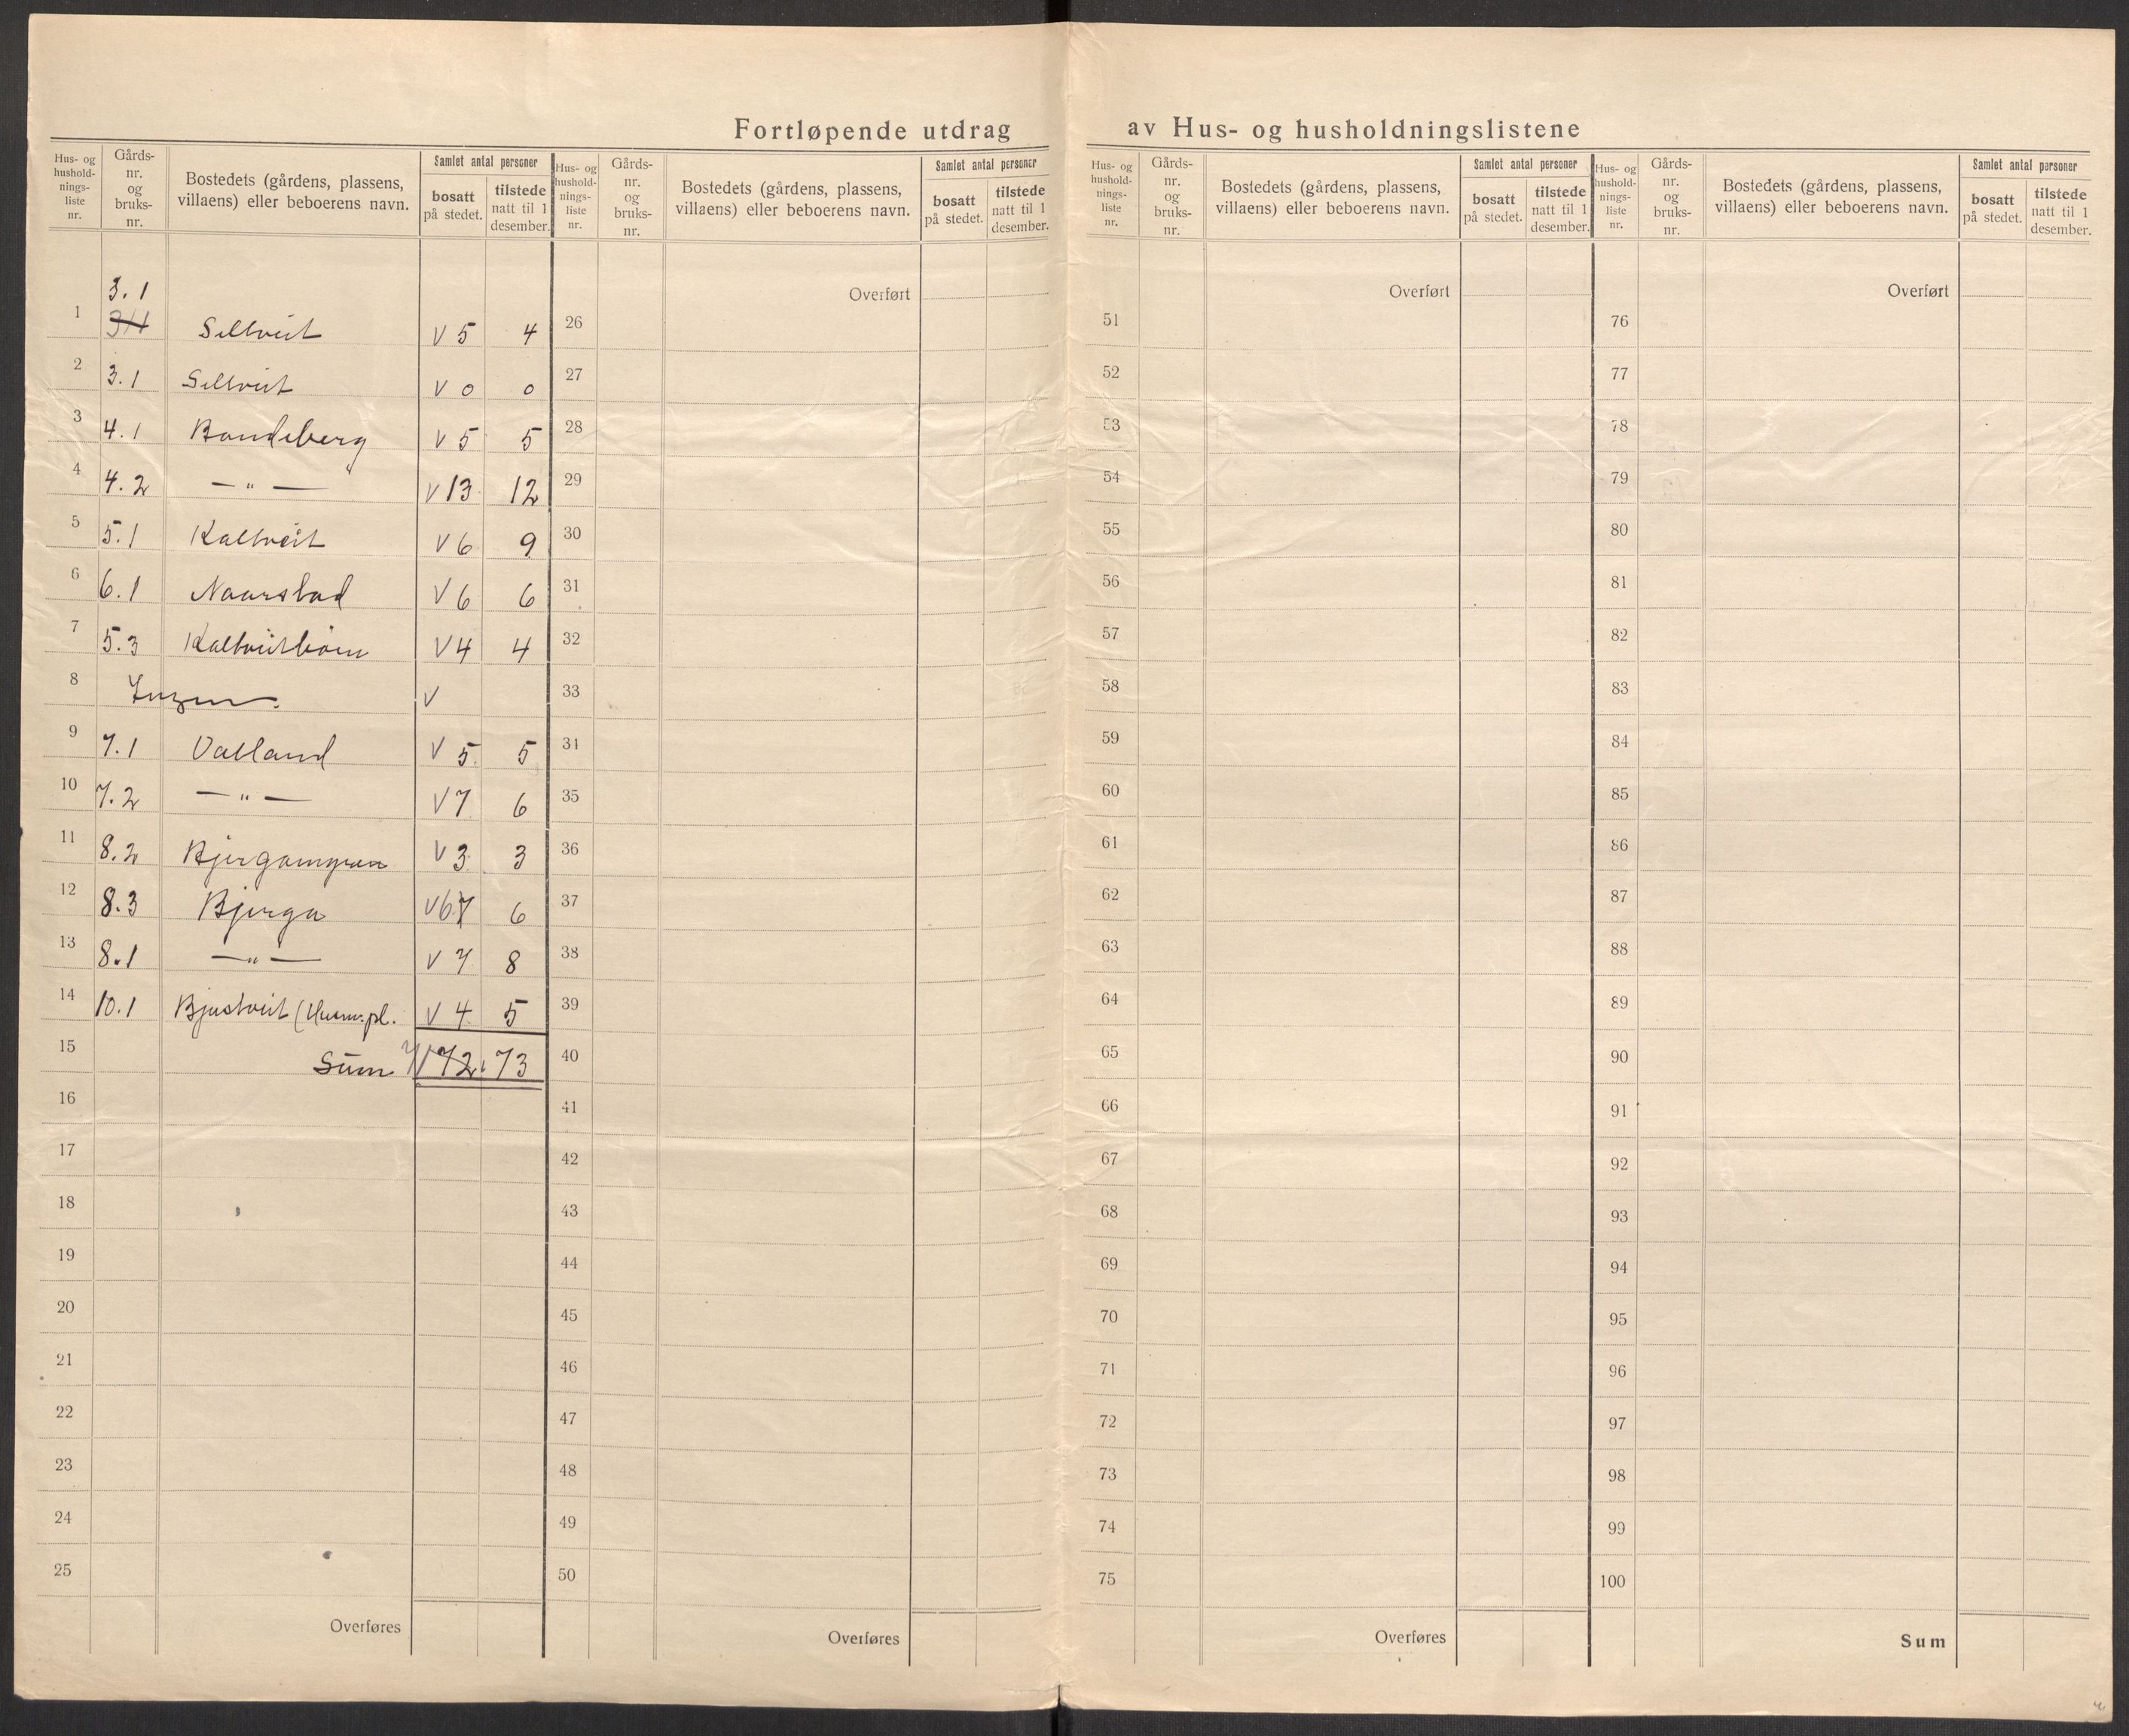 Fortløpende utdrag av Hus- og husholdningslistene
Hus- og husholdningsliste nr. | Gårds-nr. og bruks-nr. | Bostedets (gårdens, plassens, villaens) eller beboerens navn. | Samlet antal personer | bosatt på stedet. | tilstede natt til 1 desember.
Hus- og husholdningsliste nr. | Gårds-nr. og bruks-nr. | Bostedets (gårdens, plassens, villaens) eller beboerens navn. | Samlet antal personer | bosatt på stedet. | tilstede natt til 1 desember.
Hus- og husholdningsliste nr. | Gårds-nr. og bruks-nr. | Bostedets (gårdens, plassens, villaens) eller beboerens navn. | Samlet antal personer | bosatt på stedet. | tilstede natt til 1 desember.
Hus- og husholdningsliste nr. | Gårds-nr. og bruks-nr. | Bostedets (gårdens, plassens, villaens) eller beboerens navn. | Samlet antal personer | bosatt på stedet. | tilstede natt til 1 desember.
1 3.1 Seltveit V 5 4
2 3.1 Seltveit V 0 0
3 4.1 Bandeberg V 5 5
4 4.2 — " — V 13 12
5 5.1 Kaltveit V 6 9
6 6.1 Naarstad V 6 6
7 5.3 V 4 4
8 Ingen. V
9 7.1 Valland V 5 5
10 7.2 — " — V 7 6
11 8.2 V 3 3
12 8.3 Bjerga V 6 7 6
13 8.1 — " — V 7 8
14 10.1 (Husm.pl. V 4 5
15 Sum V 72 73
16
17
18
19
20
21
22
23
24
25
Overføres
Overført
26
27
28
29
30
31
32
33
34
35
36
37
38
39
40
41
42
43
44
45
46
47
48
49
50
Overføres
Overført
51
52
53
54
55
56
57
58
59
60
61
62
63
64
65
66
67
68
69
70
71
72
73
74
75
Overføres
Overført
76
77
78
79
80
81
82
83
84
85
86
87
88
89
90
91
92
93
94
95
96
97
98
99
100
Sum